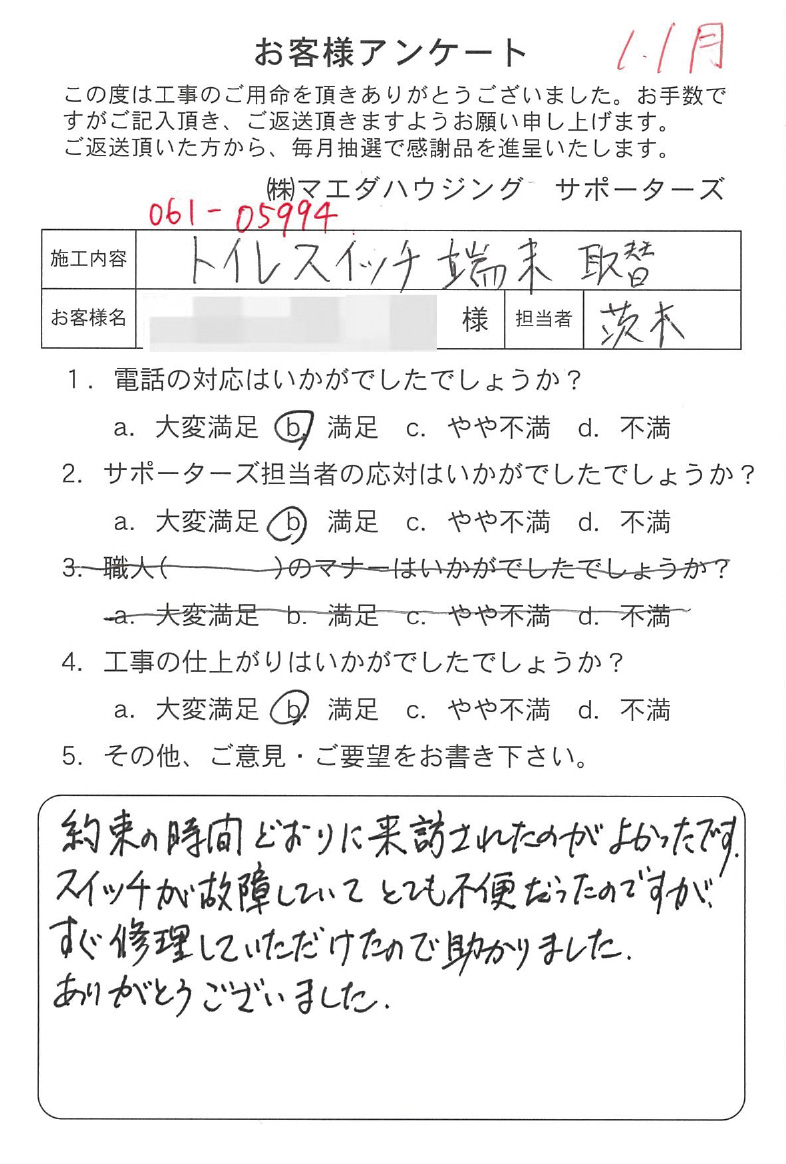 お客様アンケート
11月
この度は工事のご用命を頂きありがとうございました。お手数で
すがご記入頂き、ご返送頂きますようお願い申し上げます。
ご返送頂いた方から、毎月抽選で感謝品を進呈いたします。
㈱マエダハウジング　サポーターズ
061-05994
施工内容 トイレスイッチ端末 取替
お客様名 様 担当者 茨木
1．電話の対応はいかがでしたでしょうか？
a．大変満足 b．満足 c．やや不満 d．不満
2．サポーターズ担当者の応対はいかがでしたでしょうか？
a．大変満足 b 満足 c．やや不満 d．不満
3．職人(　　　)のマナーはいかがでしたでしょうか？
a．大変満足 b．満足 c．やや不満 d．不満
4．工事の仕上がりはいかがでしたでしょうか？
a．大変満足 b．満足 c．やや不満 d．不満
5．その他、ご意見・ご要望をお書き下さい。
約束の時間どおりに来訪されたのがよかったです.
スイッチが故障していてとても不便だったのですが、
すぐ修理していただけたので助かりました.
ありがとうございました.